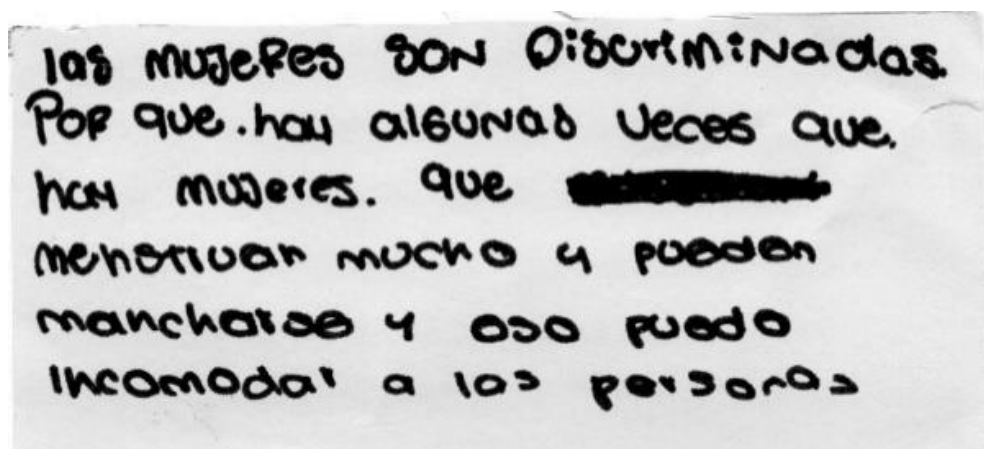 las mujeres son Discriminadas.
Por que. hay algunas veces que.
hay mujeres. que
menstruan mucho y pueden
mancharse y eso puede
incomodar a las personas